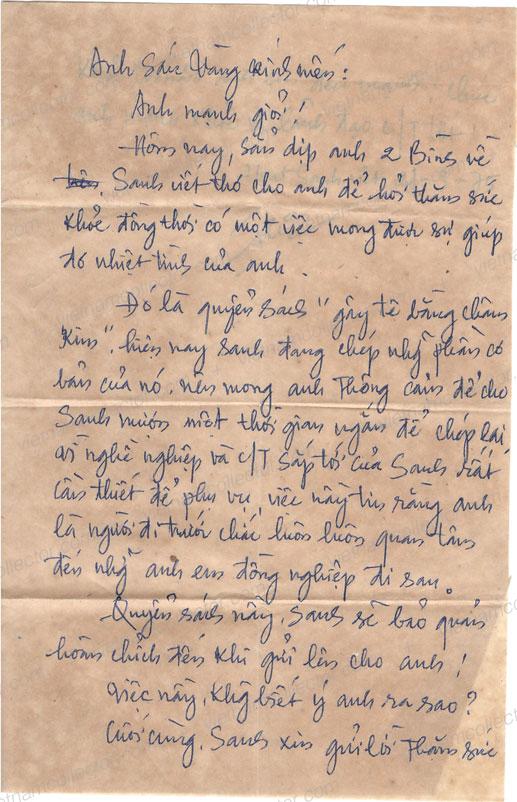 Anh Sáu Vàng kính mến:
Anh mạnh giỏi!
Hôm nay, sẵn dịp anh 2 Bình về
Sanh viết thơ cho anh để hỏi thăm sức
khỏe đồng thời có một việc mong được sự giúp
đỡ nhiệt tình của anh.
Đó là quyển sách "gây tê bằng châm
kim", hiện nay Sanh đang chép nhg~ phần cơ
bản của nó, nên mong anh thông cảm để cho
Sanh mượn một thời gian ngắn để chép lại
vì nghề nghiệp và c/T sắp tới của Sanh rất
cần thiết để phục vụ, việc nầy tin rằng anh
là người đi trước chắc luôn luôn quan tâm
đến nhg~ anh em đồng nghiệp đi sau.
Quyển sách nầy, Sanh sẽ bảo quản
hoàn chỉnh đến khi gửi lên cho anh!
Việc nầy, khg biết ý anh ra sao?
Cuối cùng, Sanh xin gửi lời thăm sức